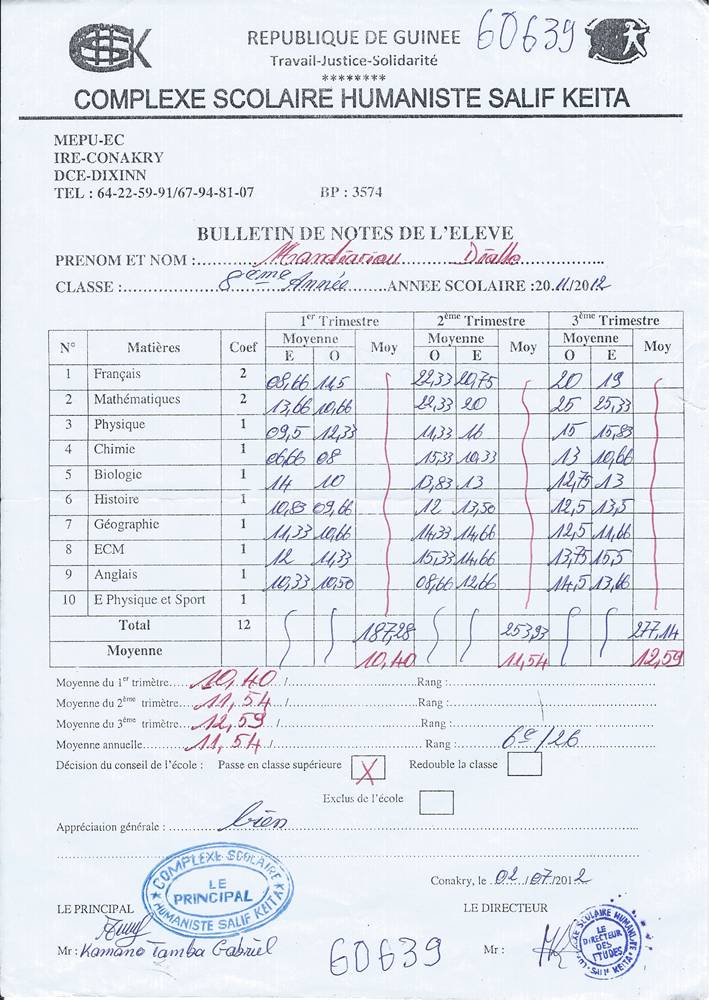 REPUBLIQUE DE GUINEE 60639
Travail-Justice-Solidarité
********
COMPLEXE SCOLAIRE HUMANISTE SALIF KEITA
MEPU-EC
IRE-CONAKRY
DCE-DIXINN
TEL : 64-22-59-91/67-94-81-07 BP : 3574
BULLETIN DE NOTES DE L'ELEVE
PRENOM ET NOM : Diallo
CLASSE : 8ème Année ANNEE SCOLAIRE : 2011/2012
1er Trimestre 2ème Trimestre 3ème Trimestre
N° Matières Coef Moyenne Moy Moyenne Moy Moyenne Moy
E O O E O E
1 Français 2 08,66 14,5 22,33 20,75 20 19
2 Mathématiques 2 13,66 10,66 22,33 20 25 25,33
3 Physique 1 09,5 12,33 11,33 16 15 15,83
4 Chimie 1 06,66 08 15,33 10,33 13 10,66
5 Biologie 1 14 10 13,83 13 12,75 13
6 Histoire 1 10,83 09,66 12 13,50 12,5 13,5
7 Géographie 1 11,33 10,66 14,33 14,66 12,5 11,66
8 ECM 1 12 11,33 15,33 14,66 13,75 15,5
9 Anglais 1 10,33 10,50 08,66 12,66 14,5 13,66
10 E Physique et Sport 1
Total 12 187,28 253,93 277,14
Moyenne 10,40 11,54 12,59
Moyenne du 1er trimètre 10,40 / Rang :
Moyenne du 2ème trimètre 11,54 / Rang :
Moyenne du 3ème trimètre 12,59 / Rang :
Moyenne annuelle 11,54 / Rang : 6e/26
Décision du conseil de l'école : Passe en classe supérieure X Redouble la classe
Exclus de l'école
Appréciation générale : bien
Conakry, le 02/07/2012
LE PRINCIPAL LE DIRECTEUR
COMPLEXE SCOLAIRE
LE
PRINCIPAL
HUMANISTE SALIF KEITA
LE
DIRECTEUR
DES
ETUDES
Mr : Kamano Tamba Gabriel 60639 Mr :